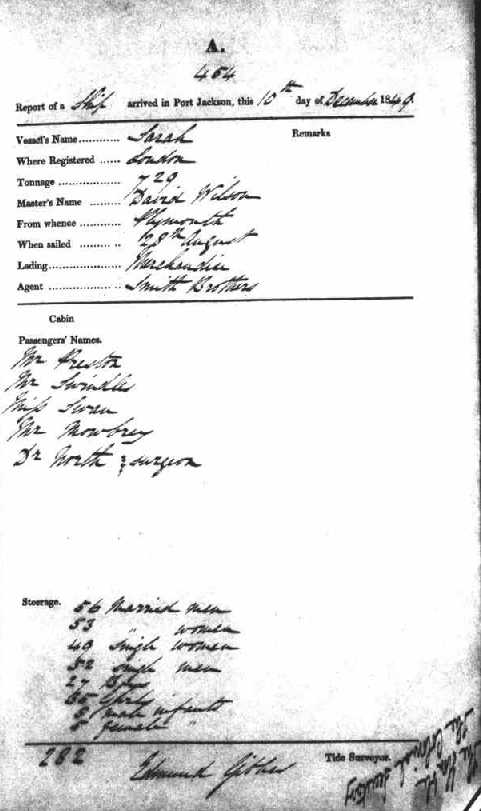 A.
464
Report of a Ship arrived in Port Jackson, this 10th day of December 1849.
Vessel's Name ............ Sarah
Remarks
Where Registered ...... London
Tonnage .................. 729
Master's Name ......... David Wilson
From whence ...... Plymouth
When sailed ......... 28th August
Lading..................... Merchandise
Agent ..................... Smith Brothers
Cabin
Passengers' Names.
Mr Preston
Mr Swindles
Miss Swan
Mr Mowbrey
Dr North ; surgeon
Steerage. 56 Married men
53 " women
49 Single women
52 Single men
27 Boys
35 Girls
5 male infants
5 female "
282
Edmund
Tide Surveyor.
The Colonial